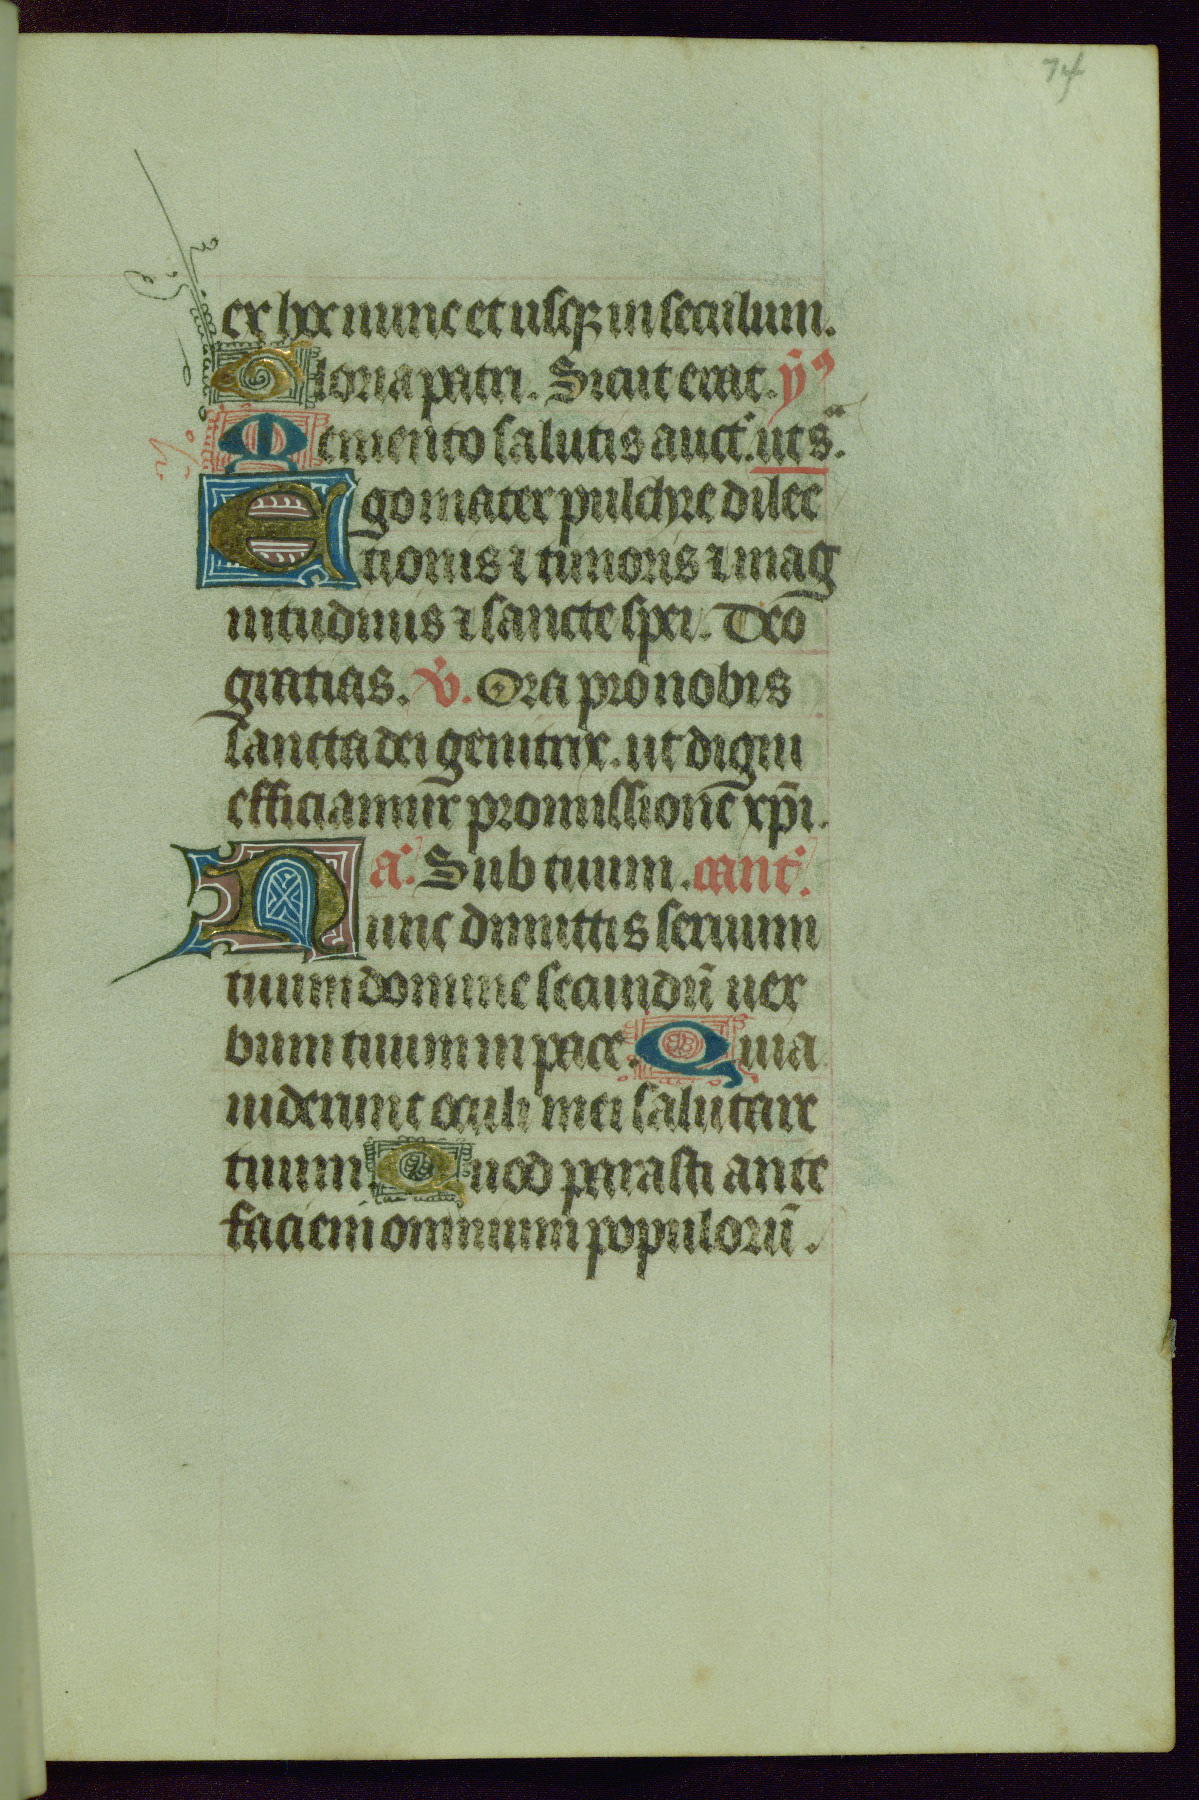 74
ex hoc nunc et usq₃ in seculum.
Gloria patri. Sicut erat. ẏ⁹
Memento salutis auct̉. ut sᵃ.
Ego mater pulchre dilec
tionis ⁊ timoris ⁊ mag
nitudinis ⁊ sancte spei. Deo
gratias. v̉. Ora pro nobis
sancta dei genitrix. ut digni
efficiamur promissionē xp̄i.
a̾. Sub tuum. cant̾.
Nunc dimittis seruum
tuum domine secundū uer
bum tuum in pace. Quia
uiderunt oculi mei salutare
tuum. Quod parasti ante
faciem omnium populorū.